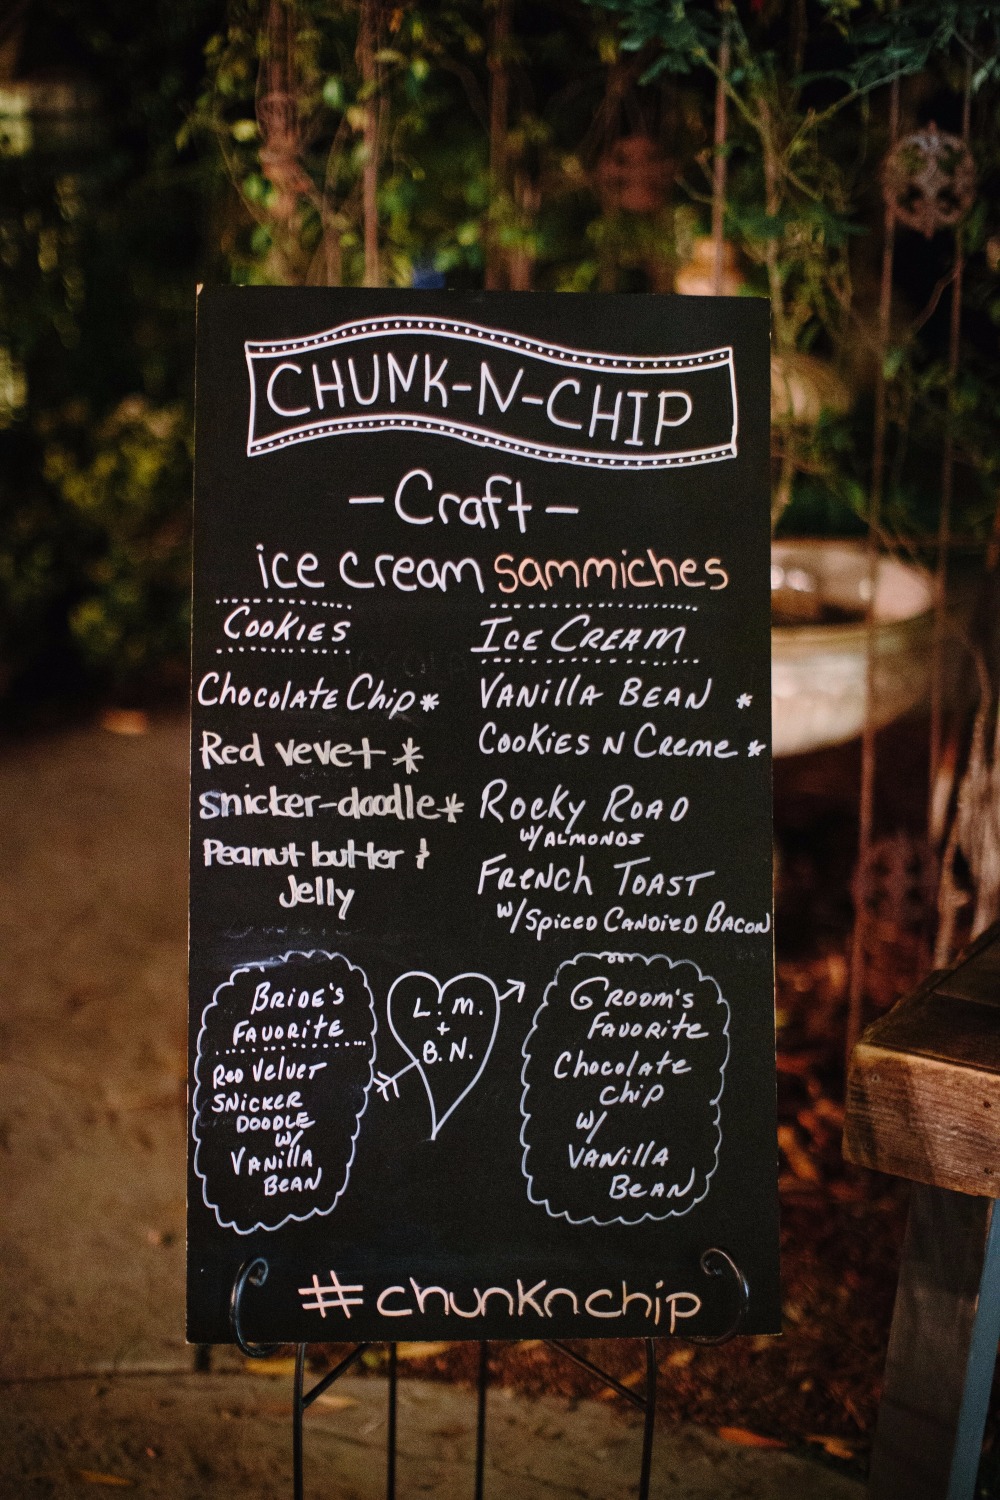 CHUNK-N-CHIP
- Craft -
ice cream sammiches
Cookies
Chocolate Chip *
Red vevet *
snicker-doodle *
Peanut butter &
Jelly
Ice Cream
Vanilla Bean *
Cookies N Creme *
Rocky Road
w/ Almonds
French Toast
w/ Spiced Candied Bacon
Bride's
Favorite
Red Velvet
Snicker
Doodle
w/
Vanilla
Bean
L. M.
+
B. N.
Groom's
Favorite
Chocolate
Chip
w/
Vanilla
Bean
#chunknchip